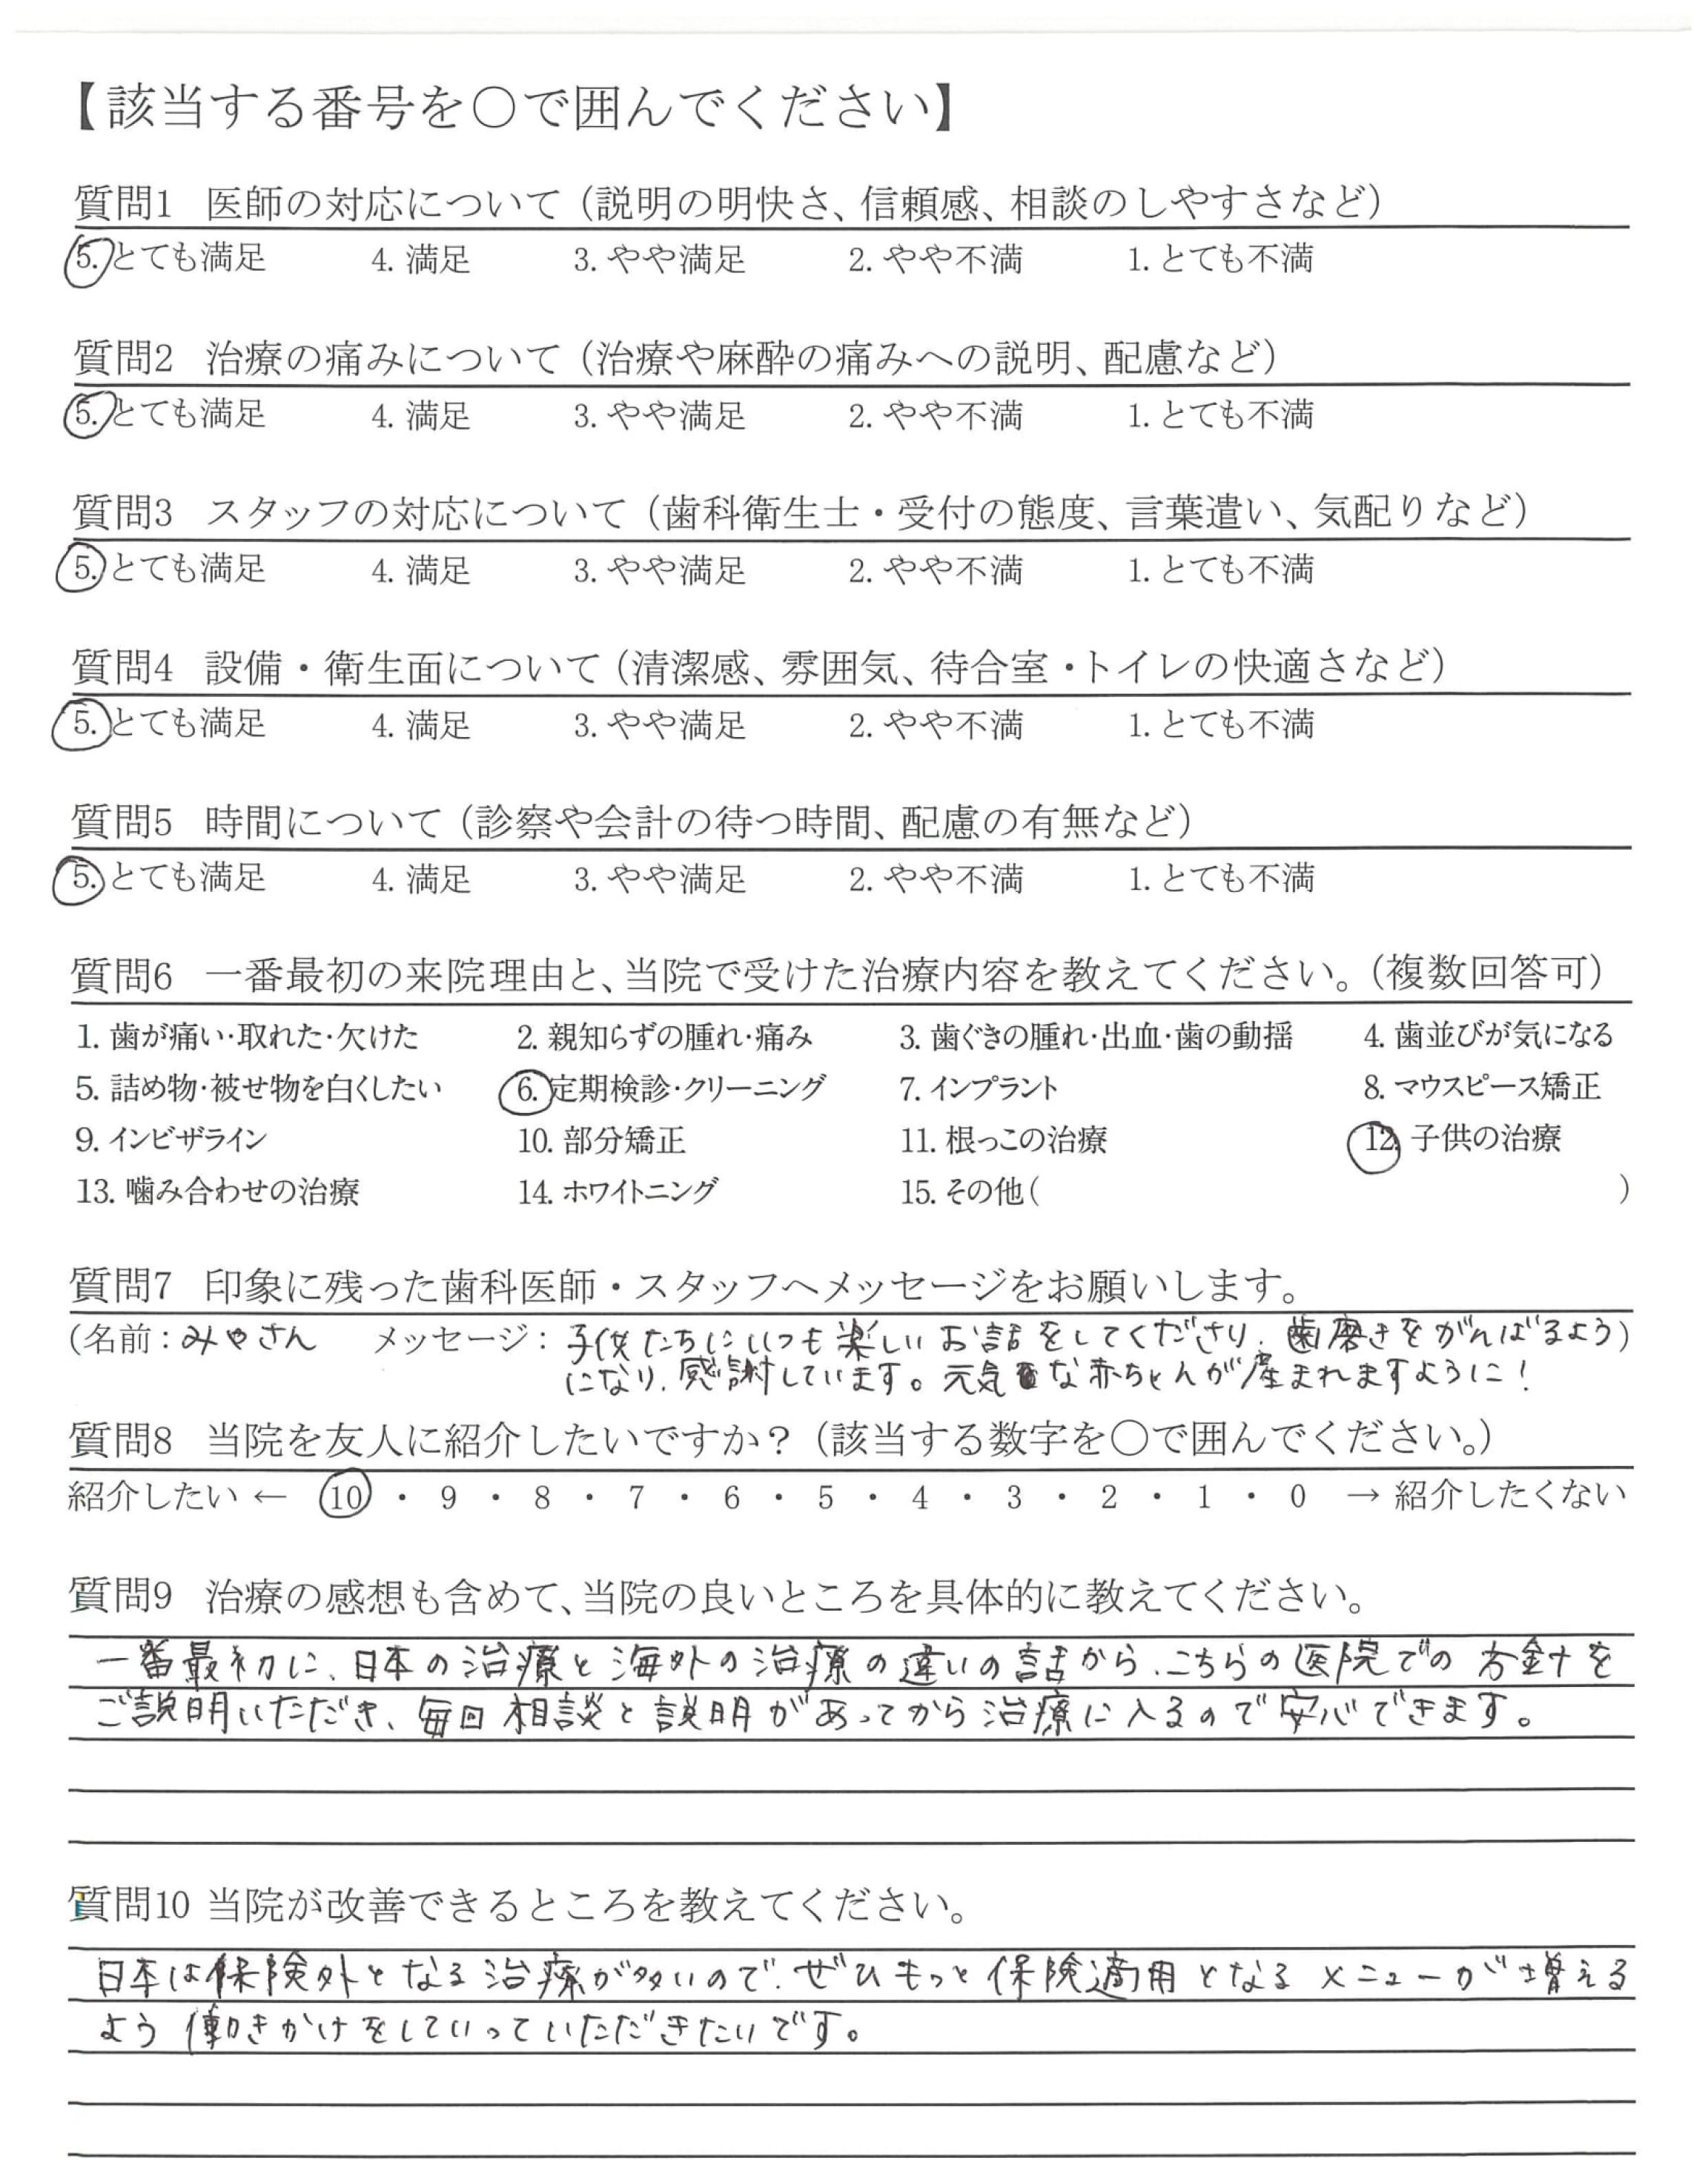 【該当する番号を○で囲んでください】
質問1 医師の対応について（説明の明快さ、信頼感、相談のしやすさなど）
5. とても満足 4. 満足 3. やや満足 2. やや不満 1. とても不満
質問2 治療の痛みについて（治療や麻酔の痛みへの説明、配慮など）
5. とても満足 4. 満足 3. やや満足 2. やや不満 1. とても不満
質問3 スタッフの対応について（歯科衛生士・受付の態度、言葉遣い、気配りなど）
5. とても満足 4. 満足 3. やや満足 2. やや不満 1. とても不満
質問4 設備・衛生面について（清潔感、雰囲気、待合室・トイレの快適さなど）
5. とても満足 4. 満足 3. やや満足 2. やや不満 1. とても不満
質問5 時間について（診察や会計の待つ時間、配慮の有無など）
5. とても満足 4. 満足 3. やや満足 2. やや不満 1. とても不満
質問6 一番最初の来院理由と、当院で受けた治療内容を教えてください。（複数回答可）
1. 歯が痛い・取れた・欠けた 2. 親知らずの腫れ・痛み 3. 歯ぐきの腫れ・出血・歯の動揺 4. 歯並びが気になる
5. 詰め物・被せ物を白くしたい 6. 定期検診・クリーニング 7. インプラント 8. マウスピース矯正
9. インビザライン 10. 部分矯正 11. 根っこの治療 12. 子供の治療
13. 噛み合わせの治療 14. ホワイトニング 15. その他（ ）
質問7 印象に残った歯科医師・スタッフへメッセージをお願いします。
（名前：みやさん メッセージ：子供たちにいつも楽しいお話をしてくださり、歯磨きをがんばるよう）
になり、感謝しています。元気な赤ちゃんが産まれますように！
質問8 当院を友人に紹介したいですか？（該当する数字を○で囲んでください。）
紹介したい ← 10 ・ 9 ・ 8 ・ 7 ・ 6 ・ 5 ・ 4 ・ 3 ・ 2 ・ 1 ・ 0 → 紹介したくない
質問9 治療の感想も含めて、当院の良いところを具体的に教えてください。
一番最初に、日本の治療と海外の治療の違いの話から、こちらの医院での方針を
ご説明いただき、毎回相談と説明があってから治療に入るので安心できます。
質問10 当院が改善できるところを教えてください。
日本は保険外となる治療が多いので、ぜひもっと保険適用となるメニューが増える
よう働きかけをしていっていただきたいです。